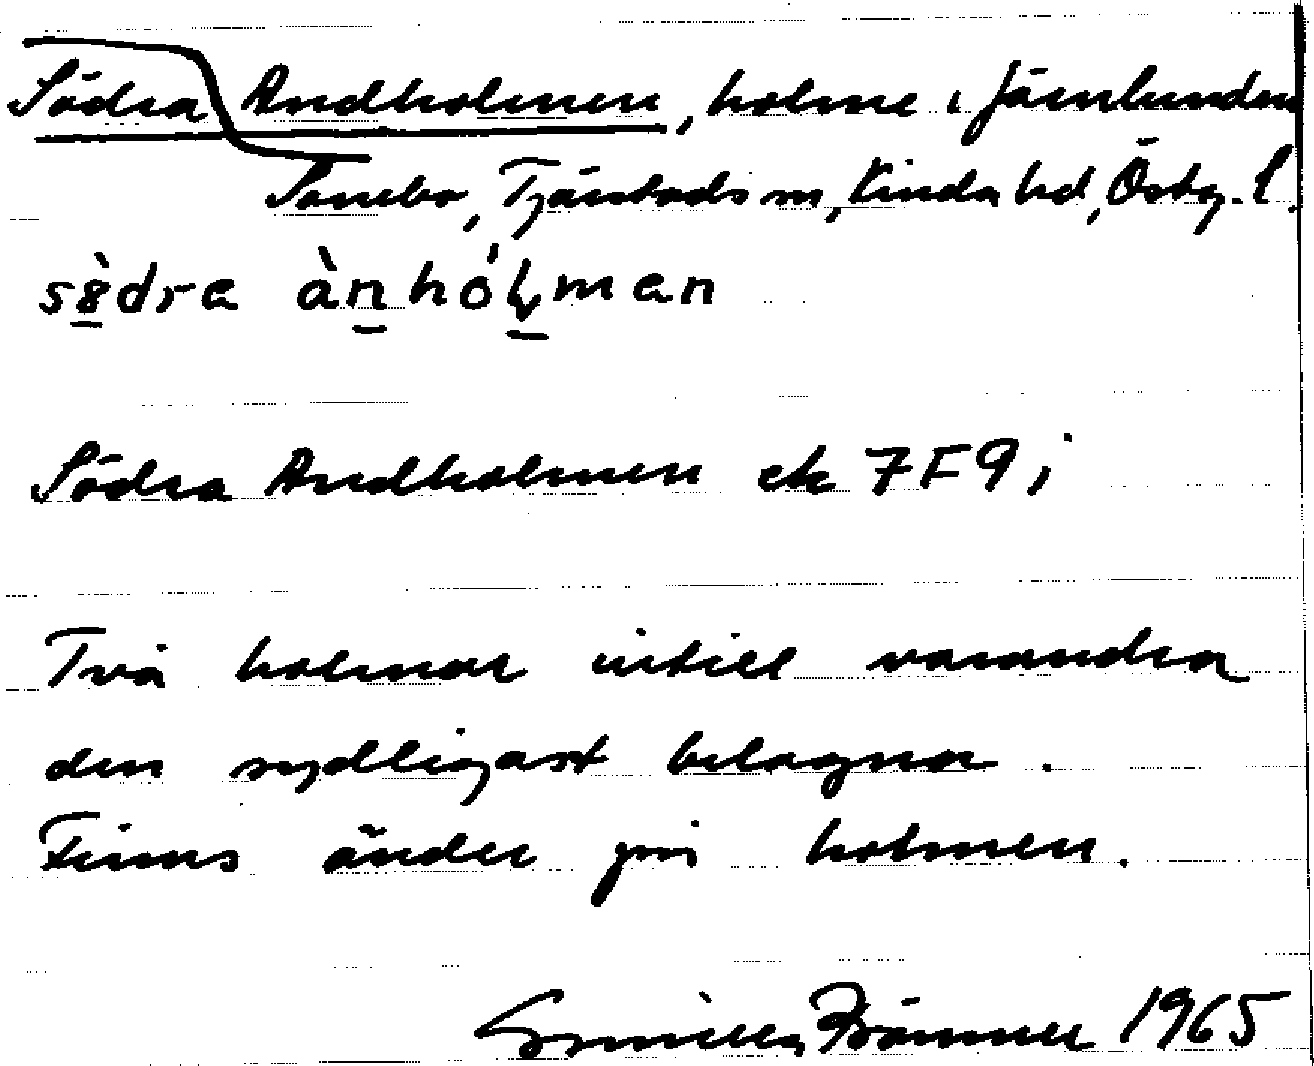 Södra Andholmen, holme i Järnlunden
Sonebo, Tjärstads sn, Kinda hd, Östg. l.
sö̀dra àn̠hól̠man
Södra Andholmen ek 7F9i
Två holmar intill varandra
den sydligast belägna.
Finns änder på holmen.
Gunilla Brännman 1965